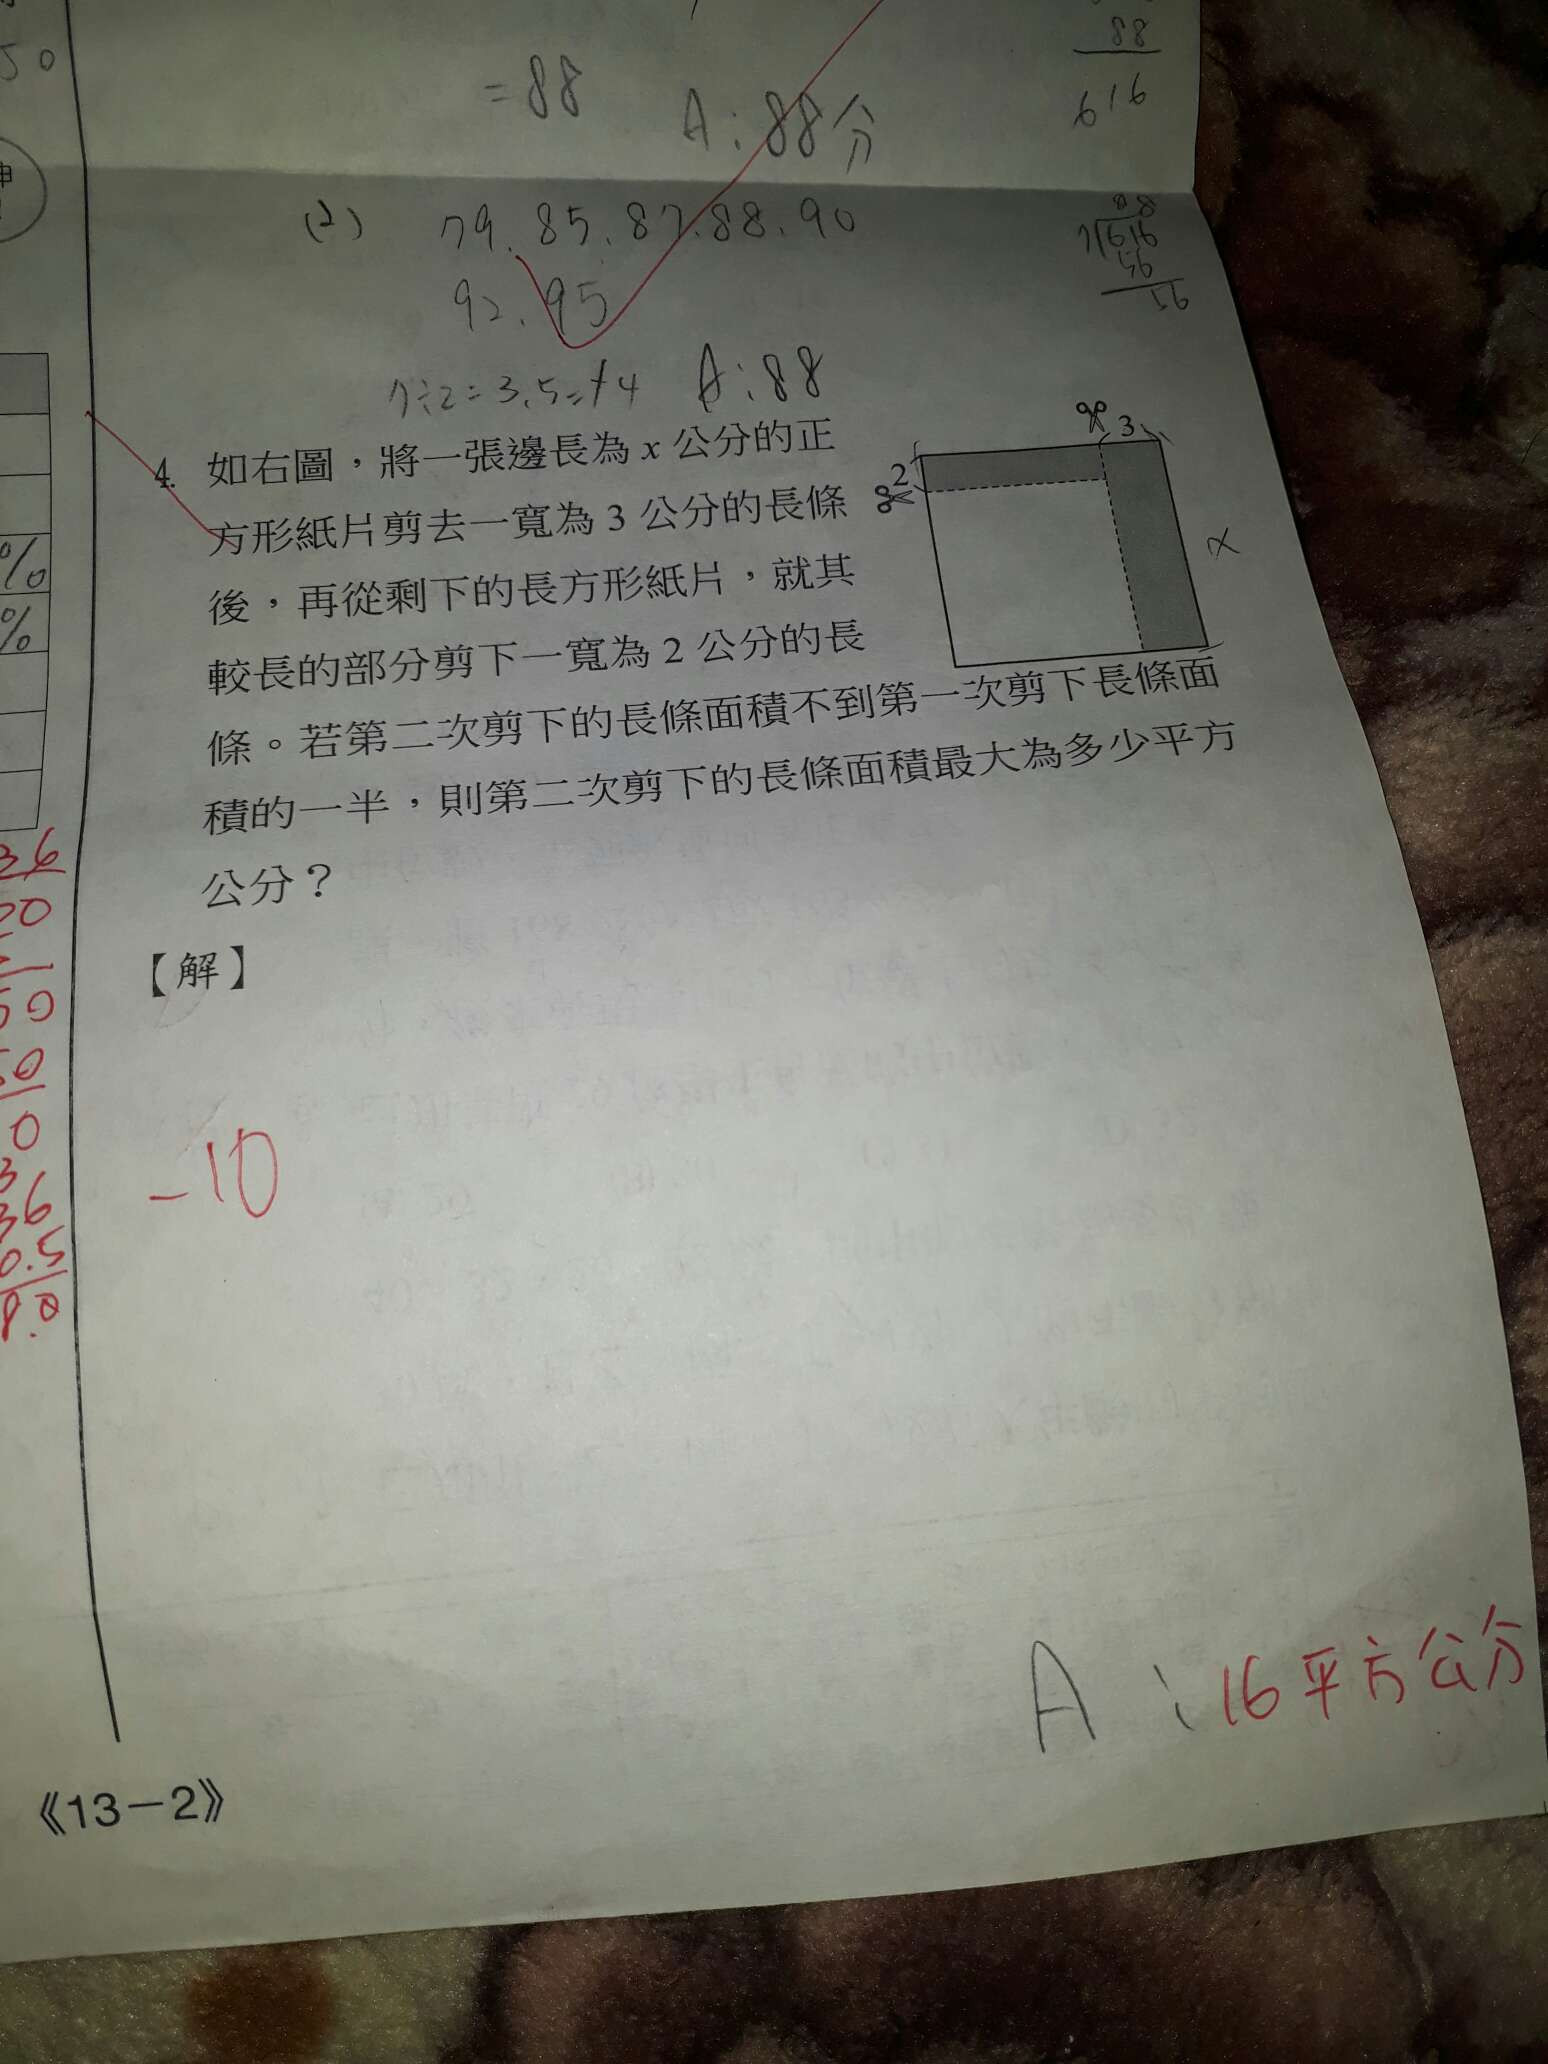 50
88
616
=88
A:88分
申
(2) 79.85.87.88.90
92.95
7÷2=3.5=+4 A:88
88
7)616
56
56
4. 如右圖，將一張邊長為 x 公分的正
方形紙片剪去一寬為 3 公分的長條
後，再從剩下的長方形紙片，就其
較長的部分剪下一寬為 2 公分的長
條。若第二次剪下的長條面積不到第一次剪下長條面
積的一半，則第二次剪下的長條面積最大為多少平方
公分？
3
2
x
【解】
-10
A:16平方公分
%
%
36
50
0
36
0.5
8.0
《13－2》